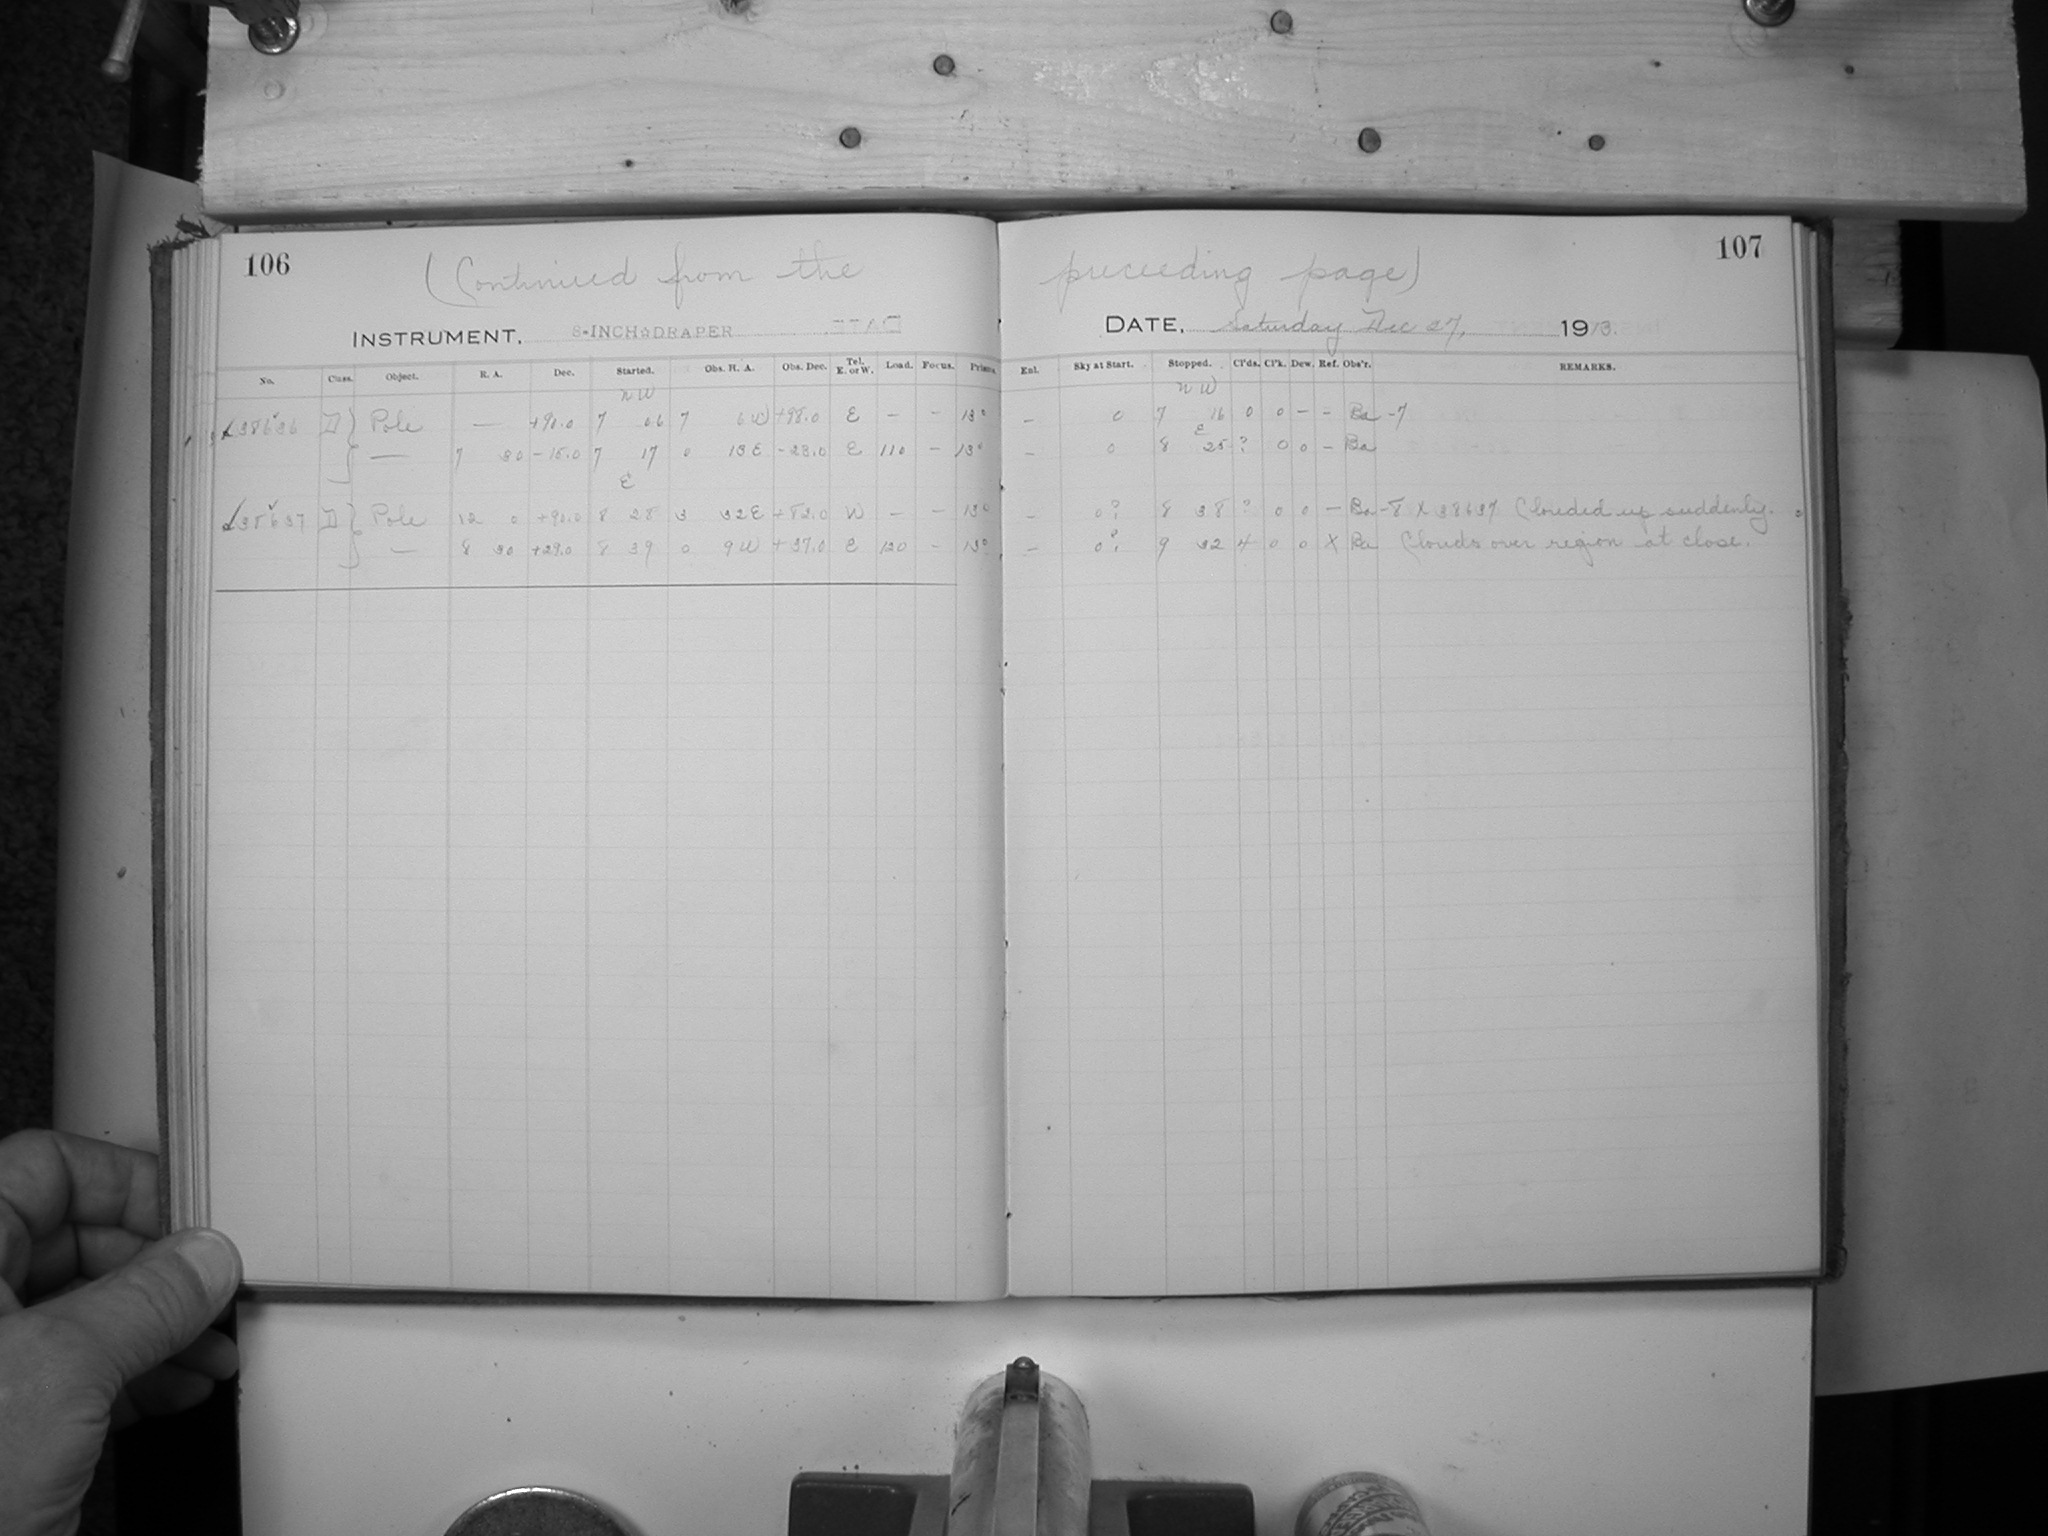 106
107
(Continued from the preceeding page)
INSTRUMENT, 8-INCH DRAPER
DATE, Saturday Dec 27, 1913.
No. Class. Object. R. A. Dec. Started. Obs. H. A. Obs. Dec. Tel. E. or W. Load. Focus. Prisms. Enl. Sky at Start. Stopped. Cl'ds. Cl'k. Dew. Ref. Obs'r. REMARKS.
n W n W
38636 D Pole — +90.0 7 06 7 6 W +98.0 E — – 13° – 0 7 16 0 0 – – Ba -7
E
— 7 30 -15.0 7 17 0 13 E -23.0 E 110 – 13° – 0 8 25 ? 0 0 – Ba
E
38637 D Pole 12 0 +90.0 8 28 3 32 E +82.0 W – – 13° – 0? 8 38 ? 0 0 – Ba -8 X 38637 Clouded up suddenly.
— 8 30 +29.0 8 39 0 9 W +37.0 E 120 – 13° – 0? 9 32 4 0 0 X Ba Clouds over region at close.